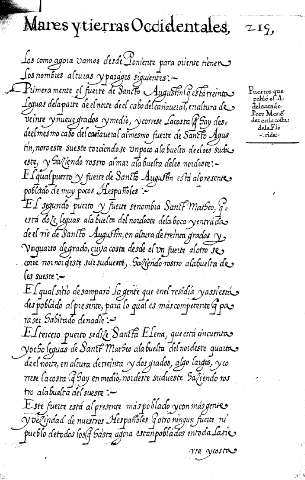 Mares y tierras Occidentales, 215,
Los como agora vamos desde Poniente para oriente tienen
los nombres alturas y parages siguientes:~
Primeramente el fuerte de Sancto Augustin que está treinta
leguas de la parte del norte del cabo del cañaveral, en altura de
veinte y nueve grados y medio, y corre la costa q̃ hay des
de el mesmo cabo del cañaveral al mesmo fuerte de Sancto Agus
tin, noroeste sueste torciendose un poco a la buelta del les sud
este, y haziendo rostro al mar a la buelta del es nordeste:~
El qual puerto y fuerte de Sancto Augustin está al presente
poblado de muy pocos Hespañoles:~
El segundo puerto y fuerte se nombra Sanct Matheo, q̃
está doze leguas a la buelta del nordeste de la boca y entrada
de el rio de Sancto Augustin, en altura de treinta grados y
un quarto de grado, cuya costa desde el un fuerte al otro se
corre nornordeste sursudueste, haziendo rostro a la buelta de
les sueste:~
El qual sitio desamparó la gente que en el residia y assi está
despoblado al presente, para lo qual es mas competente q̃ pa
ra ser habitado de nadie:~
El tercero puerto se dize Sancta Elena, que está cincuenta
y ocho leguas de Sanct Matheo a la buelta del nordeste quarta
del norte, en altura de treinta y dos grados, algo largos, y co
rrese la costa q̃ hay en medio, nordeste sudueste haziendo ros
tro a la buelta del sueste:~
Este fuerte está al presente mas poblado y con mas gente
y vezindad de nuestros Hespañoles q̃ otro ningun fuerte ni
pueblo de todos los q̃ hasta agora estan poblados en toda la tie
rra y costa
Puertos que
pobló el A-
delantado
Pero Menẽ
dez en la costa
de la Flo-
rida:~